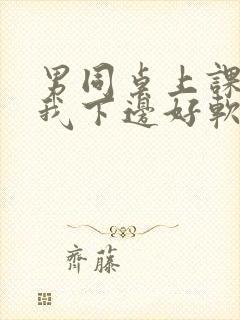 男同桌上課
我下邊好軟
齊藤